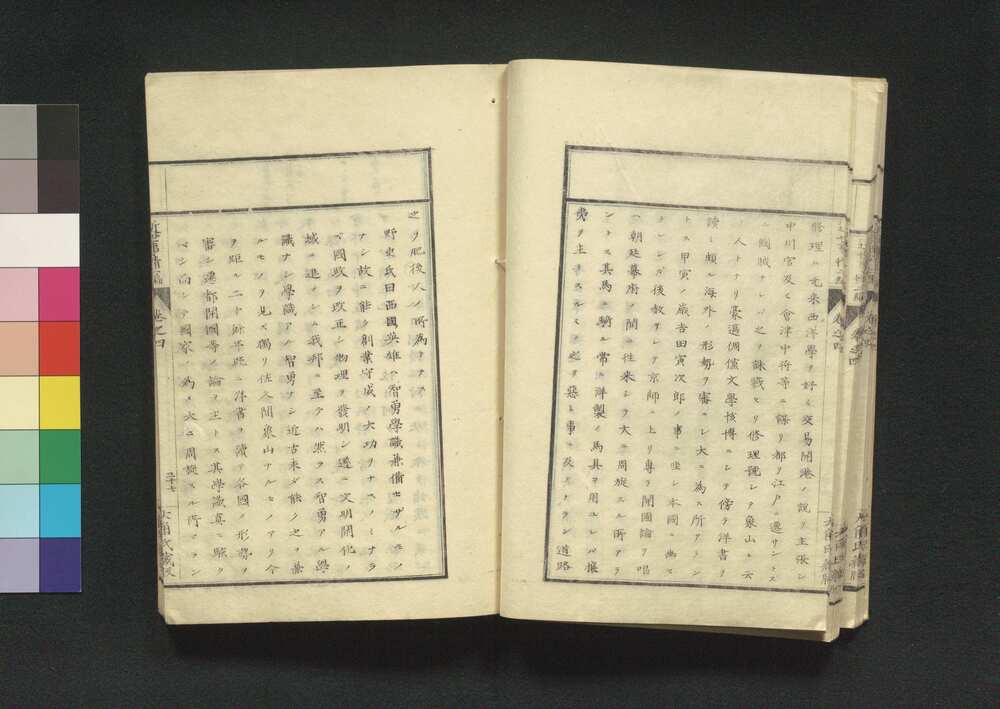 修理ハ元来西洋學ヲ好ミ交易開港ノ説ヲ主張シ
中川宮及ヒ會津中将等ニ謀リ都ヲ江戸ニ遷サントス
國賊ナレバ之ヲ誅戮セリ修理號シテ象山ト云
人トナリ豪邁倜儻文學該博ニシテ傍ラ洋書ヲ
讀ミ頗ル海外ノ形勢ヲ審ニシ大ニ為ス所アラン
トス甲寅ノ歳吉田寅次郎ノ事ニ坐シ本國ニ幽セ
ラレシガ後赦サレテ京師ニ上リ專ラ開國論ヲ唱
ヘ朝廷幕府ノ間ニ往来シテ大ニ周旋スル所アラ
ントス其馬ニ騎ル常ニ洋製ノ馬具ヲ用ユレバ攘
夷ヲ主トスル之ヲ惡ミ事ニ及ヒ道路
之ヲ肥後人ノ所為ヲ
野史氏曰西國英雄ハ智勇學識兼備セザルモノ
ナシ故ニ能ク創業守成ノ大功ヲナスノミナラ
ズ國政ヲ改正シ物理ヲ發明シ遂ニ文明開化ノ
域ニ進メシム我邦ニ至テハ然ラス智勇アル學
識ナシ學識アル智勇ナシ近古来ダ能ク之ヲ兼
ルモノヲ見ズ獨リ佐久間象山アルモノアリ今
ヲ距ル二十餘年既ニ洋書ヲ讀テ各國ノ形勢ヲ
審シ遷都開國等ノ論ヲ主トス其學識真ニ駭ク
ベシ而シテ國家ノ為メ大ニ周旋スル所アラン
巻之四
三十七